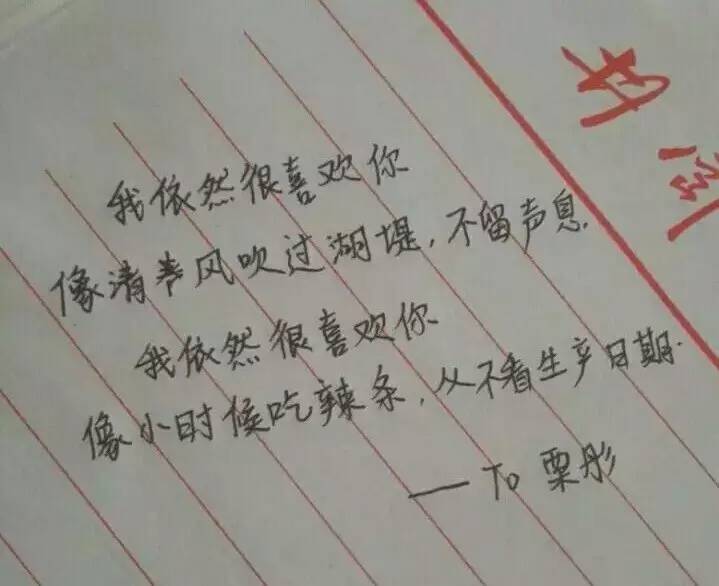 我依然很喜欢你
像清春风吹过湖堤，不留声息.
我依然很喜欢你
像小时候吃辣条，从不看生产日期.
——To 栗彤